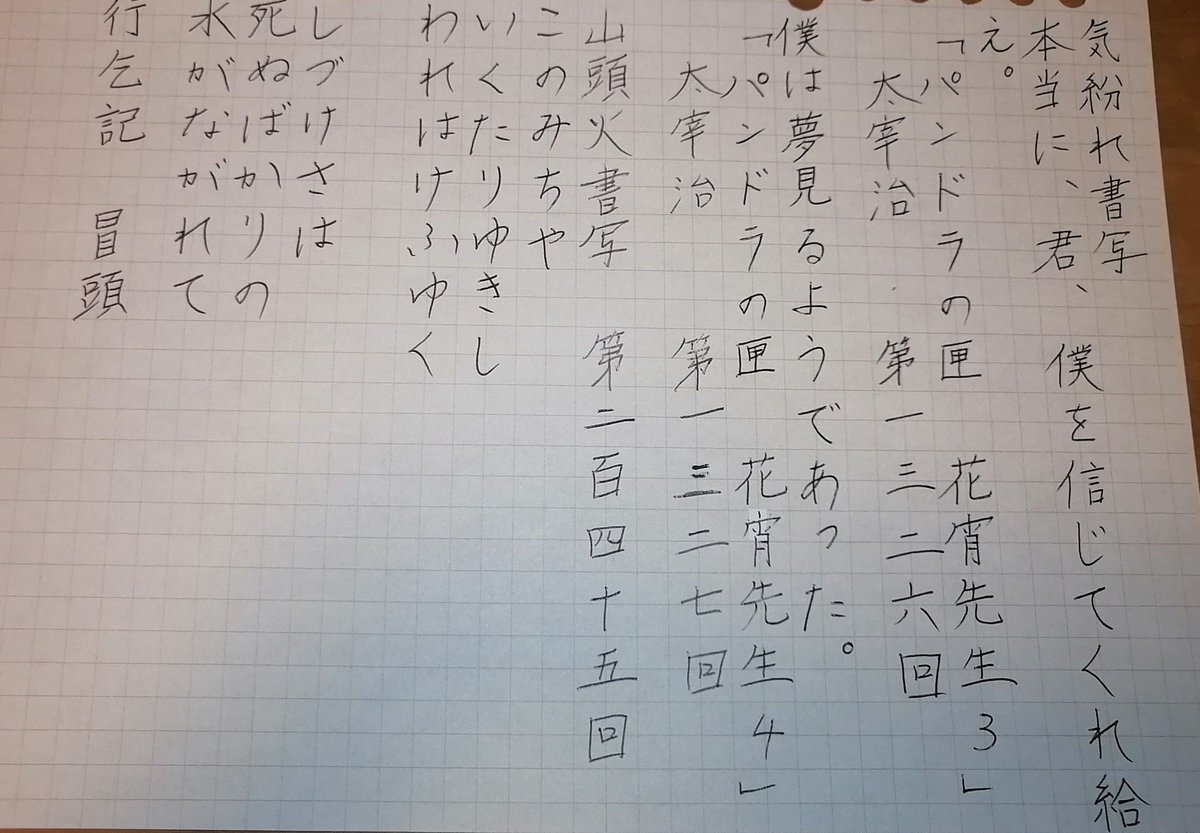 気紛れ書写
本当に、君、僕を信じてくれ給
え。
「パンドラの匣 花宵先生3」
太宰治 第一三二六回
僕は夢見るようであった。
「パンドラの匣 花宵先生4」
太宰治 第一三二七回
山頭火書写 第二百四十五回
このみちや
いくたりゆきし
われはけふゆく
しづけさは
死ぬばかりの
水がながれて
行乞記 冒頭